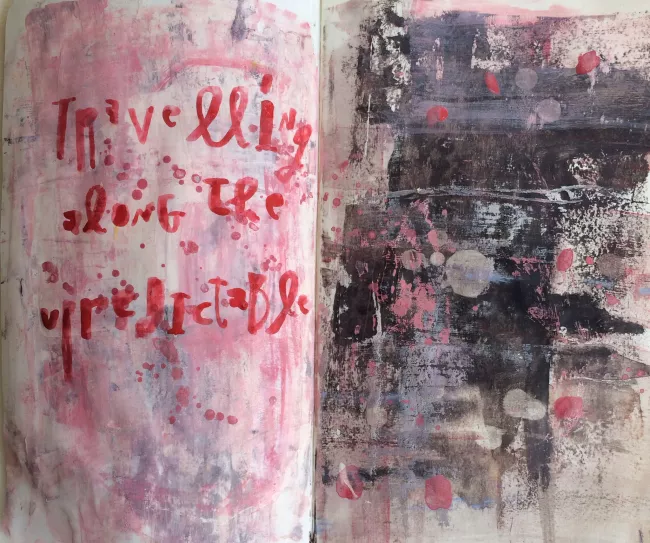 Travelling
along the
upredictable